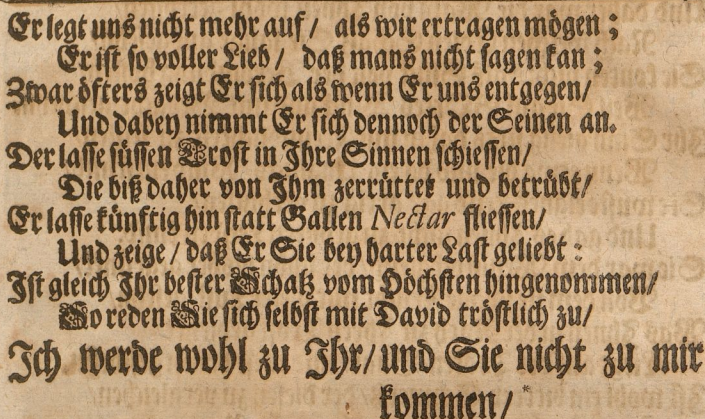 Er legt uns nicht mehr auf / als wir ertragen mögen ;
Er ist so voller Lieb / daß mans nicht sagen kan ;
Zwar öfters zeigt Er sich als wenn Er uns entgegen /
Und dabey nimmt Er sich dennoch der Seinen an.
Der lasse süssen Trost in Jhre Sinnen schiessen /
Die biß daher von Jhm zerrüttet und betrübt /
Er lasse künftig hin statt Gallen Nectar fliessen /
Und zeige / daß Er Sie bey harter Last geliebt :
Jst gleich Jhr bester Schatz vom Höchsten hingenommen /
So reden Sie sich selbst mit David tröstlich zu /
Jch werde wohl zu Jhr / und Sie nicht zu mir
kommen / *